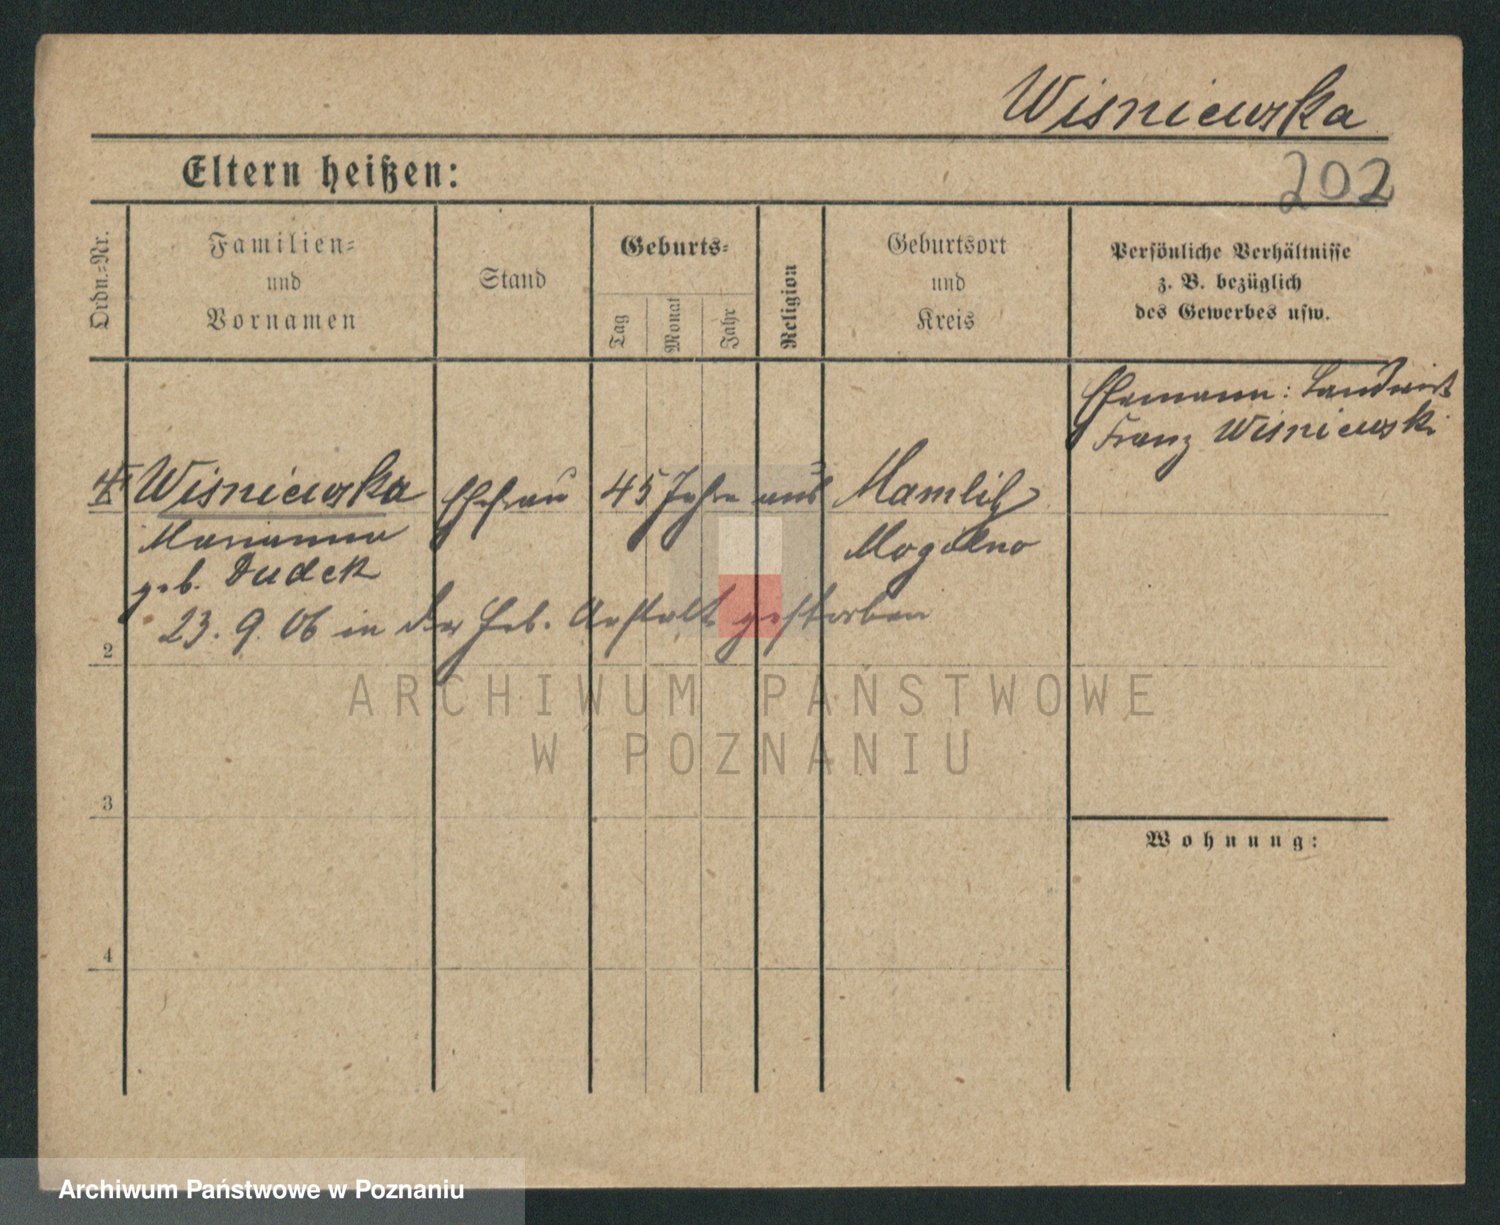 Wisniewska
202
Eltern heißen:
Ordn.-Nr.
Familien- und Vornamen
Stand
Geburts-
Tag
Monat
Jahr
Religion
Geburtsort und Kreis
Persönliche Verhältnisse z. B. bezüglich des Gewerbes usw.
Ehemann: Landwirt
Franz Wisniewski
Wisniewska Ehefrau 45 Jahre aus Mamlitz
Marianna Mogilno
geb. Dudek
23. 9. 06 in der Heb. Anstalt gestorben
2
3
4
Wohnung:
ARCHIWUM PAŃSTWOWE
W POZNANIU
Archiwum Państwowe w Poznaniu